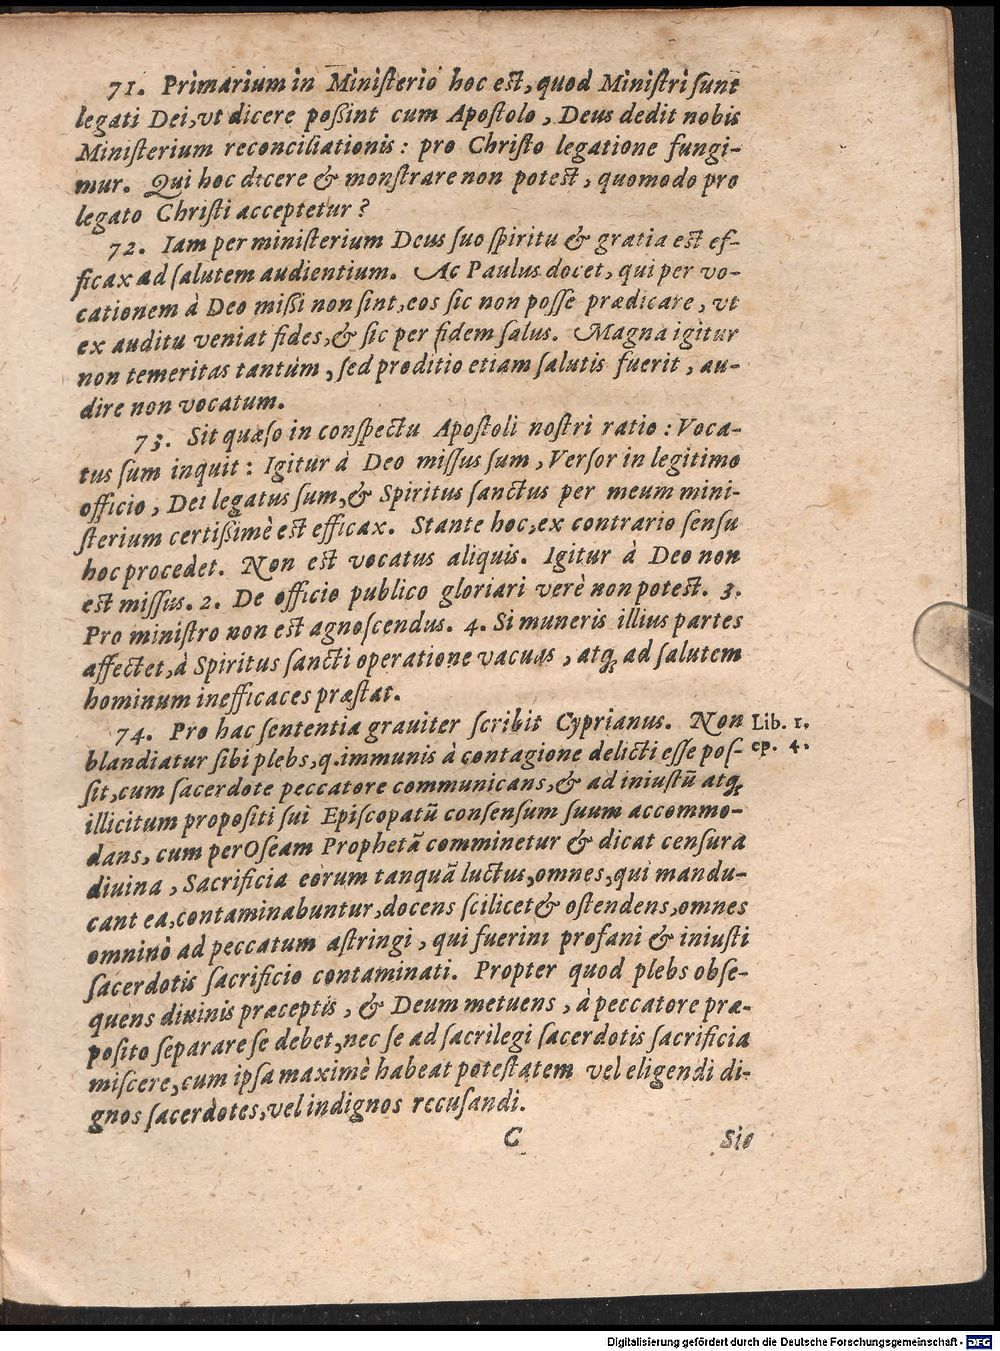 71. Primarium in Ministerio hoc est, quod Ministri sunt
legati Dei, vt dicere poßint cum Apostolo, Deus dedit nobis
Ministerium reconciliationis: pro Christo legatione fungi-
mur. Qui hoc dicere & monstrare non potest, quomodo pro
legato Christi acceptetur?
72. Iam per ministerium Deus suo spiritu & gratia est ef-
ficax ad salutem audientium. Ac Paulus docet, qui per vo-
cationem à Deo mißi non sint, eos sic non posse prædicare, vt
ex auditu veniat fides, & sic per fidem salus. Magna igitur
non temeritas tantùm, sed proditio etiam salutis fuerit, au-
dire non vocatum.
73. Sit quæso in conspectu Apostoli nostri ratio: Voca-
tus sum inquit: Igitur à Deo missus sum, Versor in legitimo
officio, Dei legatus sum, & Spiritus sanctus per meum mini-
sterium certißimè est efficax. Stante hoc, ex contrario sensu
hoc procedet. Non est vocatus aliquis. Igitur à Deo non
est missus. 2. De officio publico gloriari verè non potest. 3.
Pro ministro non est agnoscendus. 4. Si muneris illius partes
affectet, à Spiritus sancti operatione vacuas, atq́; ad salutem
hominum inefficaces præstat.
74. Pro hac sententia grauiter scribit Cyprianus. Non
Lib. 1.
blandiatur sibi plebs, q. immunis à contagione delicti esse pos-
ep. 4.
sit, cum sacerdote peccatore communicans, & ad iniustũ atq́;
illicitum propositi sui Episcopatũ consensum suum accommo-
dans, cum per Oseam Prophetã comminetur & dicat censura
diuina, Sacrificia eorum tanquã luctus, omnes, qui mandu-
cant ea, contaminabuntur, docens scilicet & ostendens, omnes
omninò ad peccatum astringi, qui fuerint profani & iniusti
sacerdotis sacrificio contaminati. Propter quod plebs obse-
quens diuinis præceptis, & Deum metuens, à peccatore præ-
posito separare se debet, nec se ad sacrilegi sacerdotis sacrificia
miscere, cum ipsa maximè habeat potestatem vel eligendi di-
gnos sacerdotes, vel indignos recusandi.
C
Sic
Digitalisierung gefördert durch die Deutsche Forschungsgemeinschaft - DFG